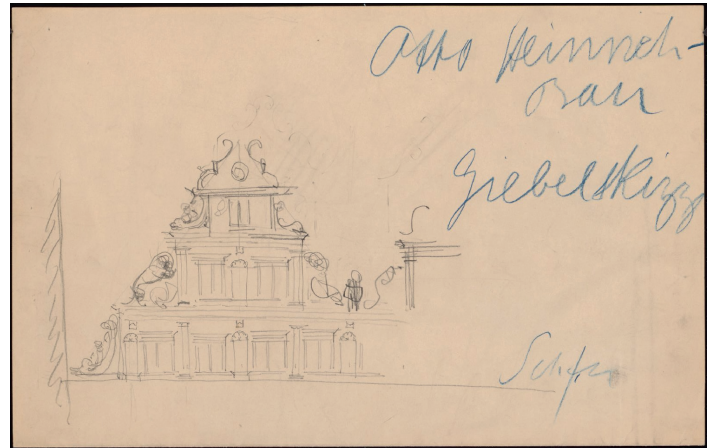 Otto Heinrich-
Bau
Giebelskizze